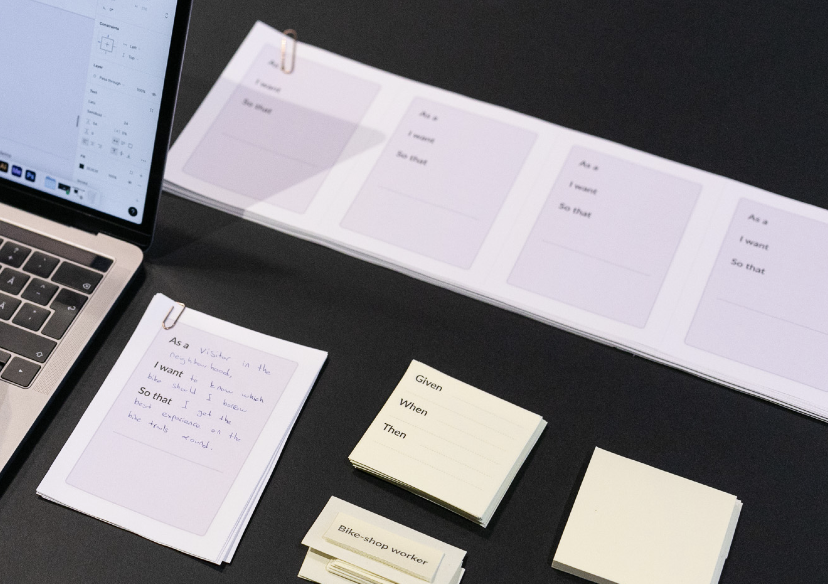 As a
I want
So that
As a
I want
So that
As a
I want
So that
As a
I want
So that
As a Visitor in the
neighborhood,
I want to know which
bike should I borrow
So that I get the
best experience on the
bike trails around.
Given
When
Then
Bike-shop worker